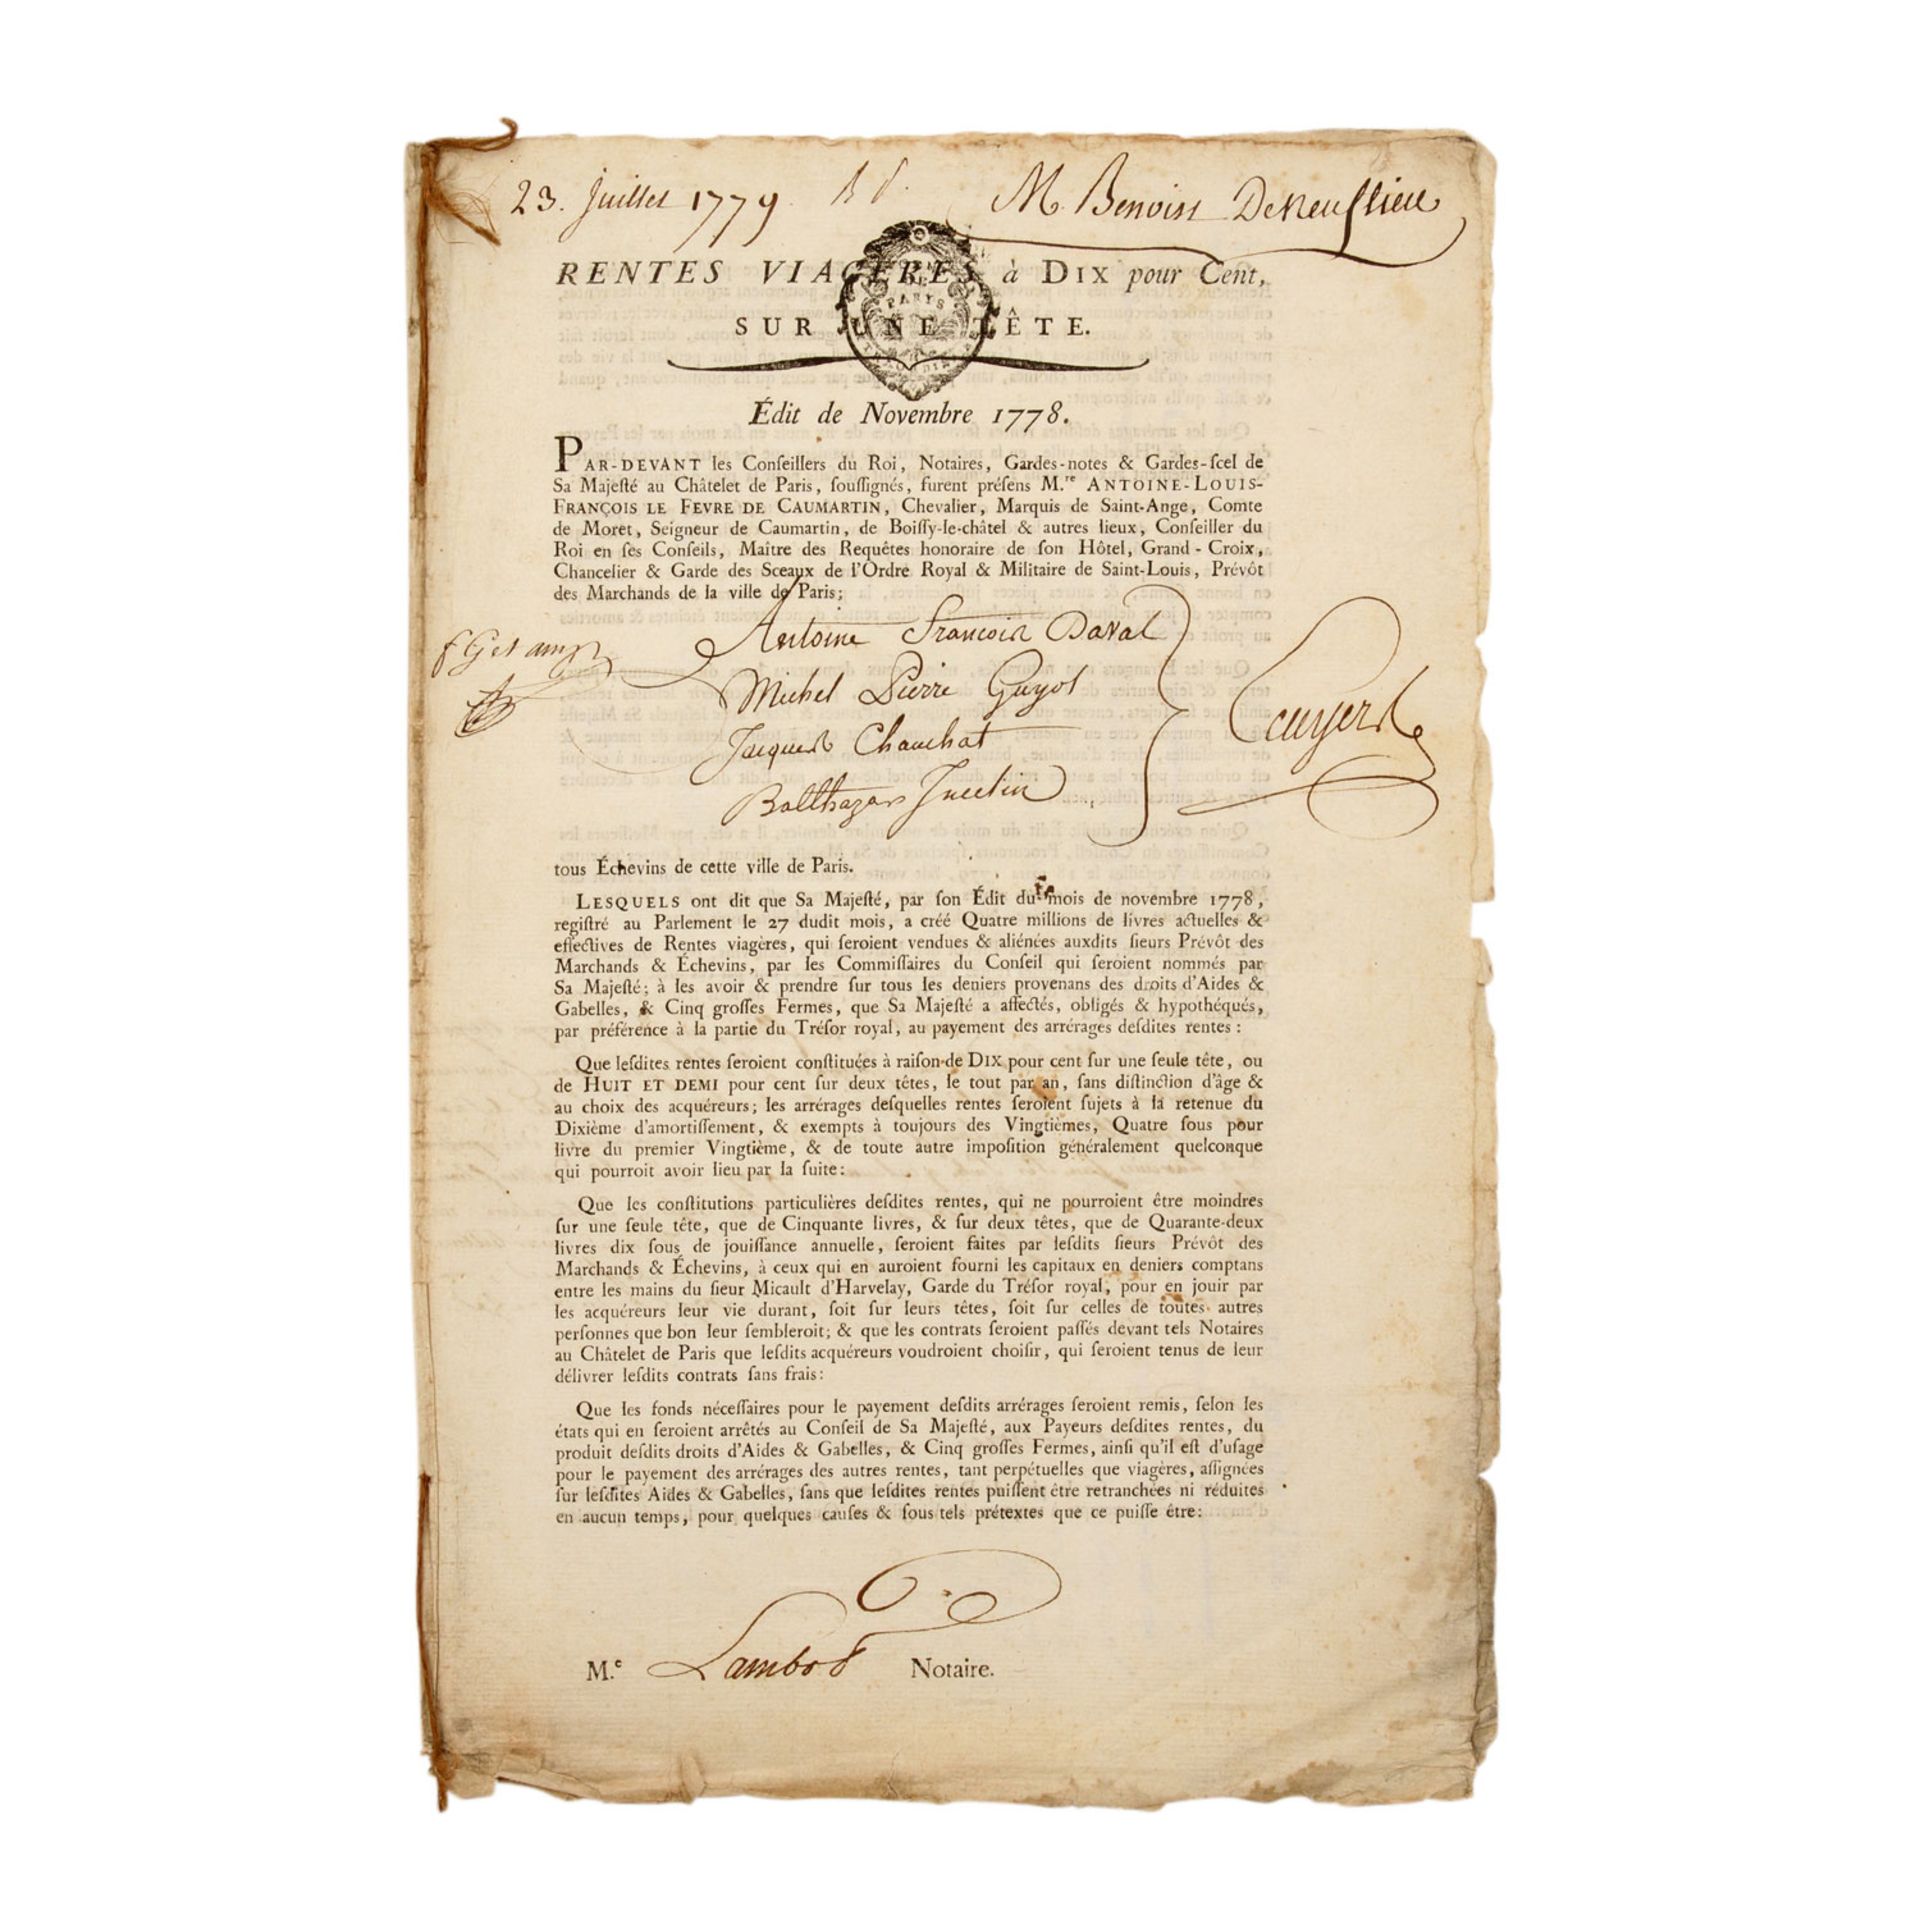 23. Juillet 1779. M. Benoist
RENTES VIAGERES à DIX pour Cent,
SUR UNE TÊTE.
PARIS
Édit de Novembre 1778.
PAR-DEVANT les Conſeillers du Roi, Notaires, Gardes-notes & Gardes-ſcel de
Sa Majeſté au Châtelet de Paris, ſouſſignés, furent préſens M.re ANTOINE-LOUIS-
FRANÇOIS LE FEVRE DE CAUMARTIN, Chevalier, Marquis de Saint-Ange, Comte
de Moret, Seigneur de Caumartin, de Boiſſy-le-châtel & autres lieux, Conſeiller du
Roi en ſes Conſeils, Maître des Requêtes honoraire de ſon Hôtel, Grand-Croix,
Chancelier & Garde des Sceaux de l'Ordre Royal & Militaire de Saint-Louis, Prévôt
des Marchands de la ville de Paris;
Antoine François Daval
Michel Pierre Guyot
Jacques Chauchat
Balthazar
tous Échevins de cette ville de Paris.
LESQUELS ont dit que Sa Majeſté, par ſon Édit du mois de novembre 1778,
regiſtré au Parlement le 27 dudit mois, a créé Quatre millions de livres actuelles &
effectives de Rentes viagères, qui ſeroient vendues & aliénées auxdits ſieurs Prévôt des
Marchands & Échevins, par les Commiſſaires du Conſeil qui ſeroient nommés par
Sa Majeſté; à les avoir & prendre ſur tous les deniers provenans des droits d'Aides &
Gabelles, & Cinq groſſes Fermes, que Sa Majeſté a affectés, obligés & hypothéqués,
par préférence à la partie du Tréſor royal, au payement des arrérages deſdites rentes:
Que leſdites rentes ſeroient conſtituées à raiſon de DIX pour cent ſur une ſeule tête, ou
de HUIT ET DEMI pour cent ſur deux têtes, le tout par an, ſans diſtinction d'âge &
au choix des acquéreurs; les arrérages deſquelles rentes ſeroient ſujets à la retenue du
Dixième d'amortiſſement, & exempts à toujours des Vingtièmes, Quatre ſous pour
livre du premier Vingtième, & de toute autre impoſition généralement quelconque
qui pourroit avoir lieu par la ſuite:
Que les conſtitutions particulières deſdites rentes, qui ne pourroient être moindres
ſur une ſeule tête, que de Cinquante livres, & ſur deux têtes, que de Quarante-deux
livres dix ſous de jouiſſance annuelle, ſeroient faites par leſdits ſieurs Prévôt des
Marchands & Échevins, à ceux qui en auroient fourni les capitaux en deniers comptans
entre les mains du ſieur Micault d'Harvelay, Garde du Tréſor royal, pour en jouir par
les acquéreurs leur vie durant, ſoit ſur leurs têtes, ſoit ſur celles de toutes autres
perſonnes que bon leur ſembleroit; & que les contrats ſeroient paſſés devant tels Notaires
au Châtelet de Paris que leſdits acquéreurs voudroient choiſir, qui ſeroient tenus de leur
délivrer leſdits contrats ſans frais:
Que les fonds néceſſaires pour le payement deſdits arrérages ſeroient remis, ſelon les
états qui en ſeroient arrêtés au Conſeil de Sa Majeſté, aux Payeurs deſdites rentes, du
produit deſdits droits d'Aides & Gabelles, & Cinq groſſes Fermes, ainſi qu'il eſt d'uſage
pour le payement des arrérages des autres rentes, tant perpétuelles que viagères, aſſignées
ſur leſdites Aides & Gabelles, ſans que leſdites rentes puiſſent être retranchées ni réduites
en aucun temps, pour quelques cauſes & ſous tels prétextes que ce puiſſe être:
M.e Lambot Notaire.